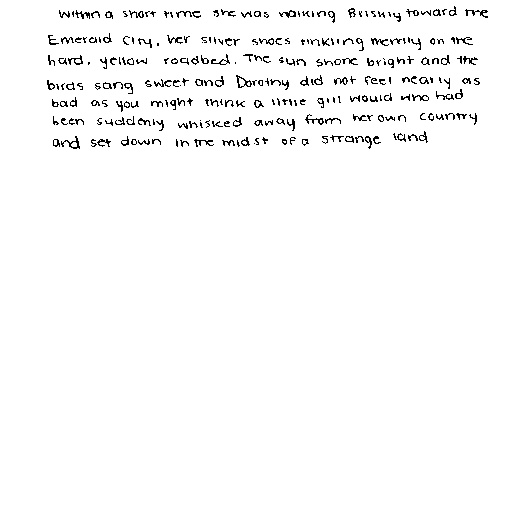 Within a short time she was walking Briskly toward the
Emerald City, her silver shoes tinkling merrily on the
hard, yellow roadbed. The sun shone bright and the
birds sang sweet and Dorothy did not feel nearly as
bad as you might think a little girl would who had
been suddenly whisked away from her own country
and set down in the midst of a strange land